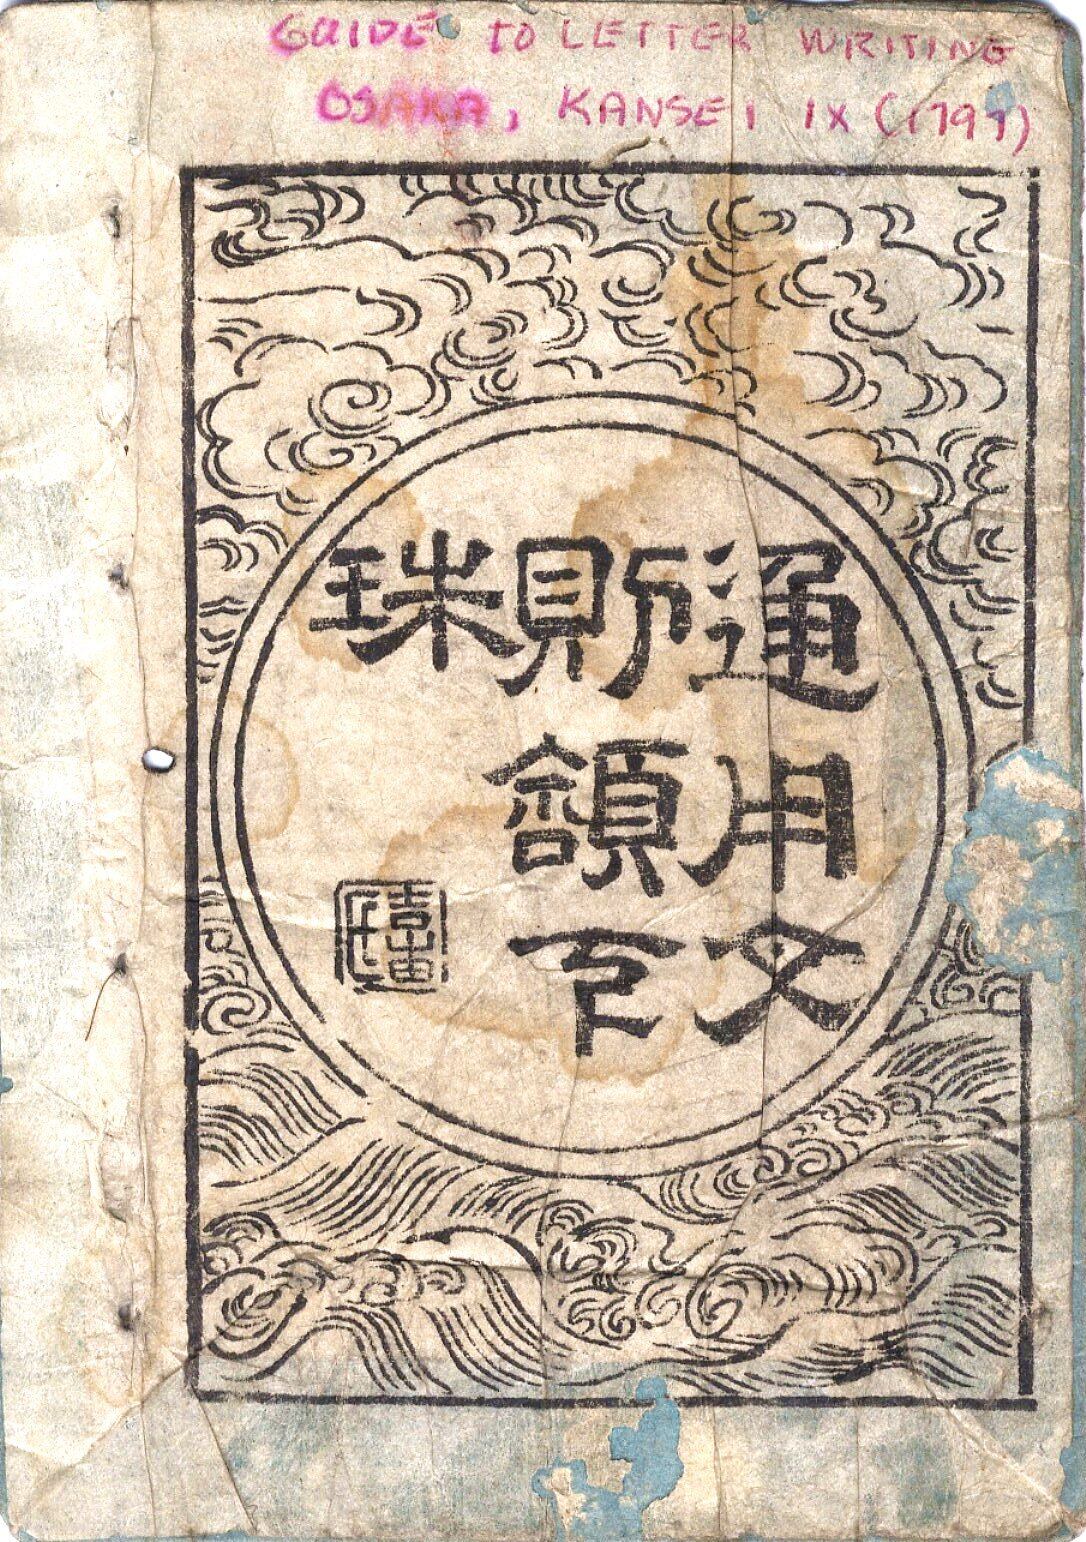 GUIDE TO LETTER WRITING
OSAKA, KANSEI IX (1797)
通用文
則頷下
珠